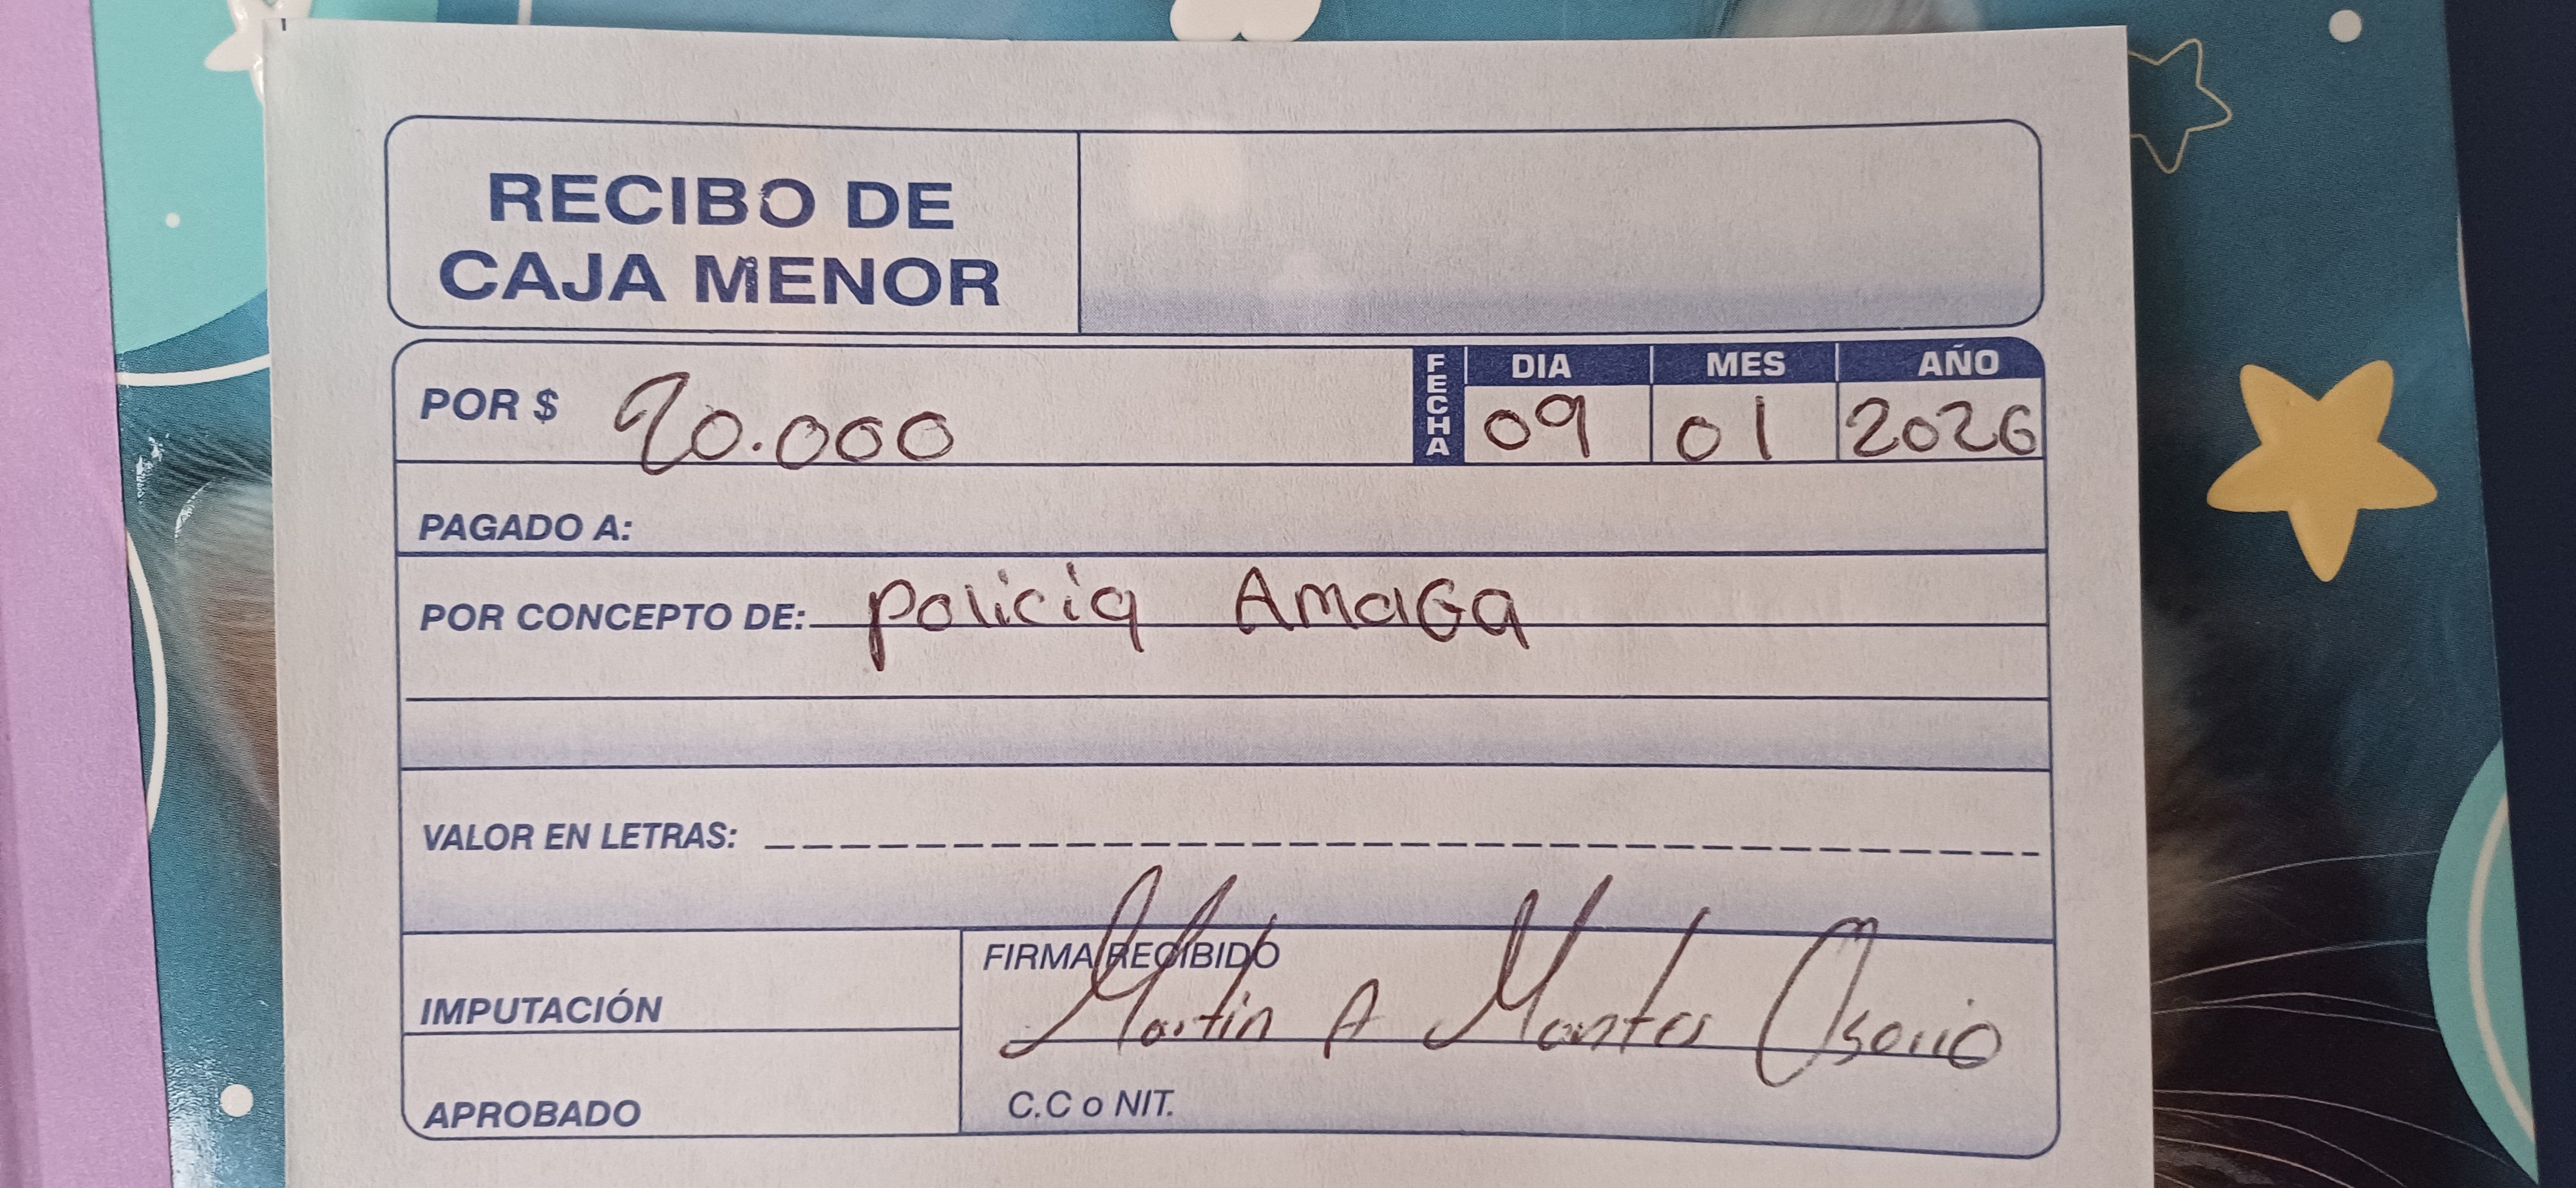 RECIBO DE
CAJA MENOR
POR $ 20.000
FECHA
DIA MES AÑO
09 01 2026
PAGADO A:
POR CONCEPTO DE: policia AmaGa
VALOR EN LETRAS:
IMPUTACIÓN
APROBADO
FIRMA RECIBIDO
Martin A Montes Osorio
C.C o NIT.